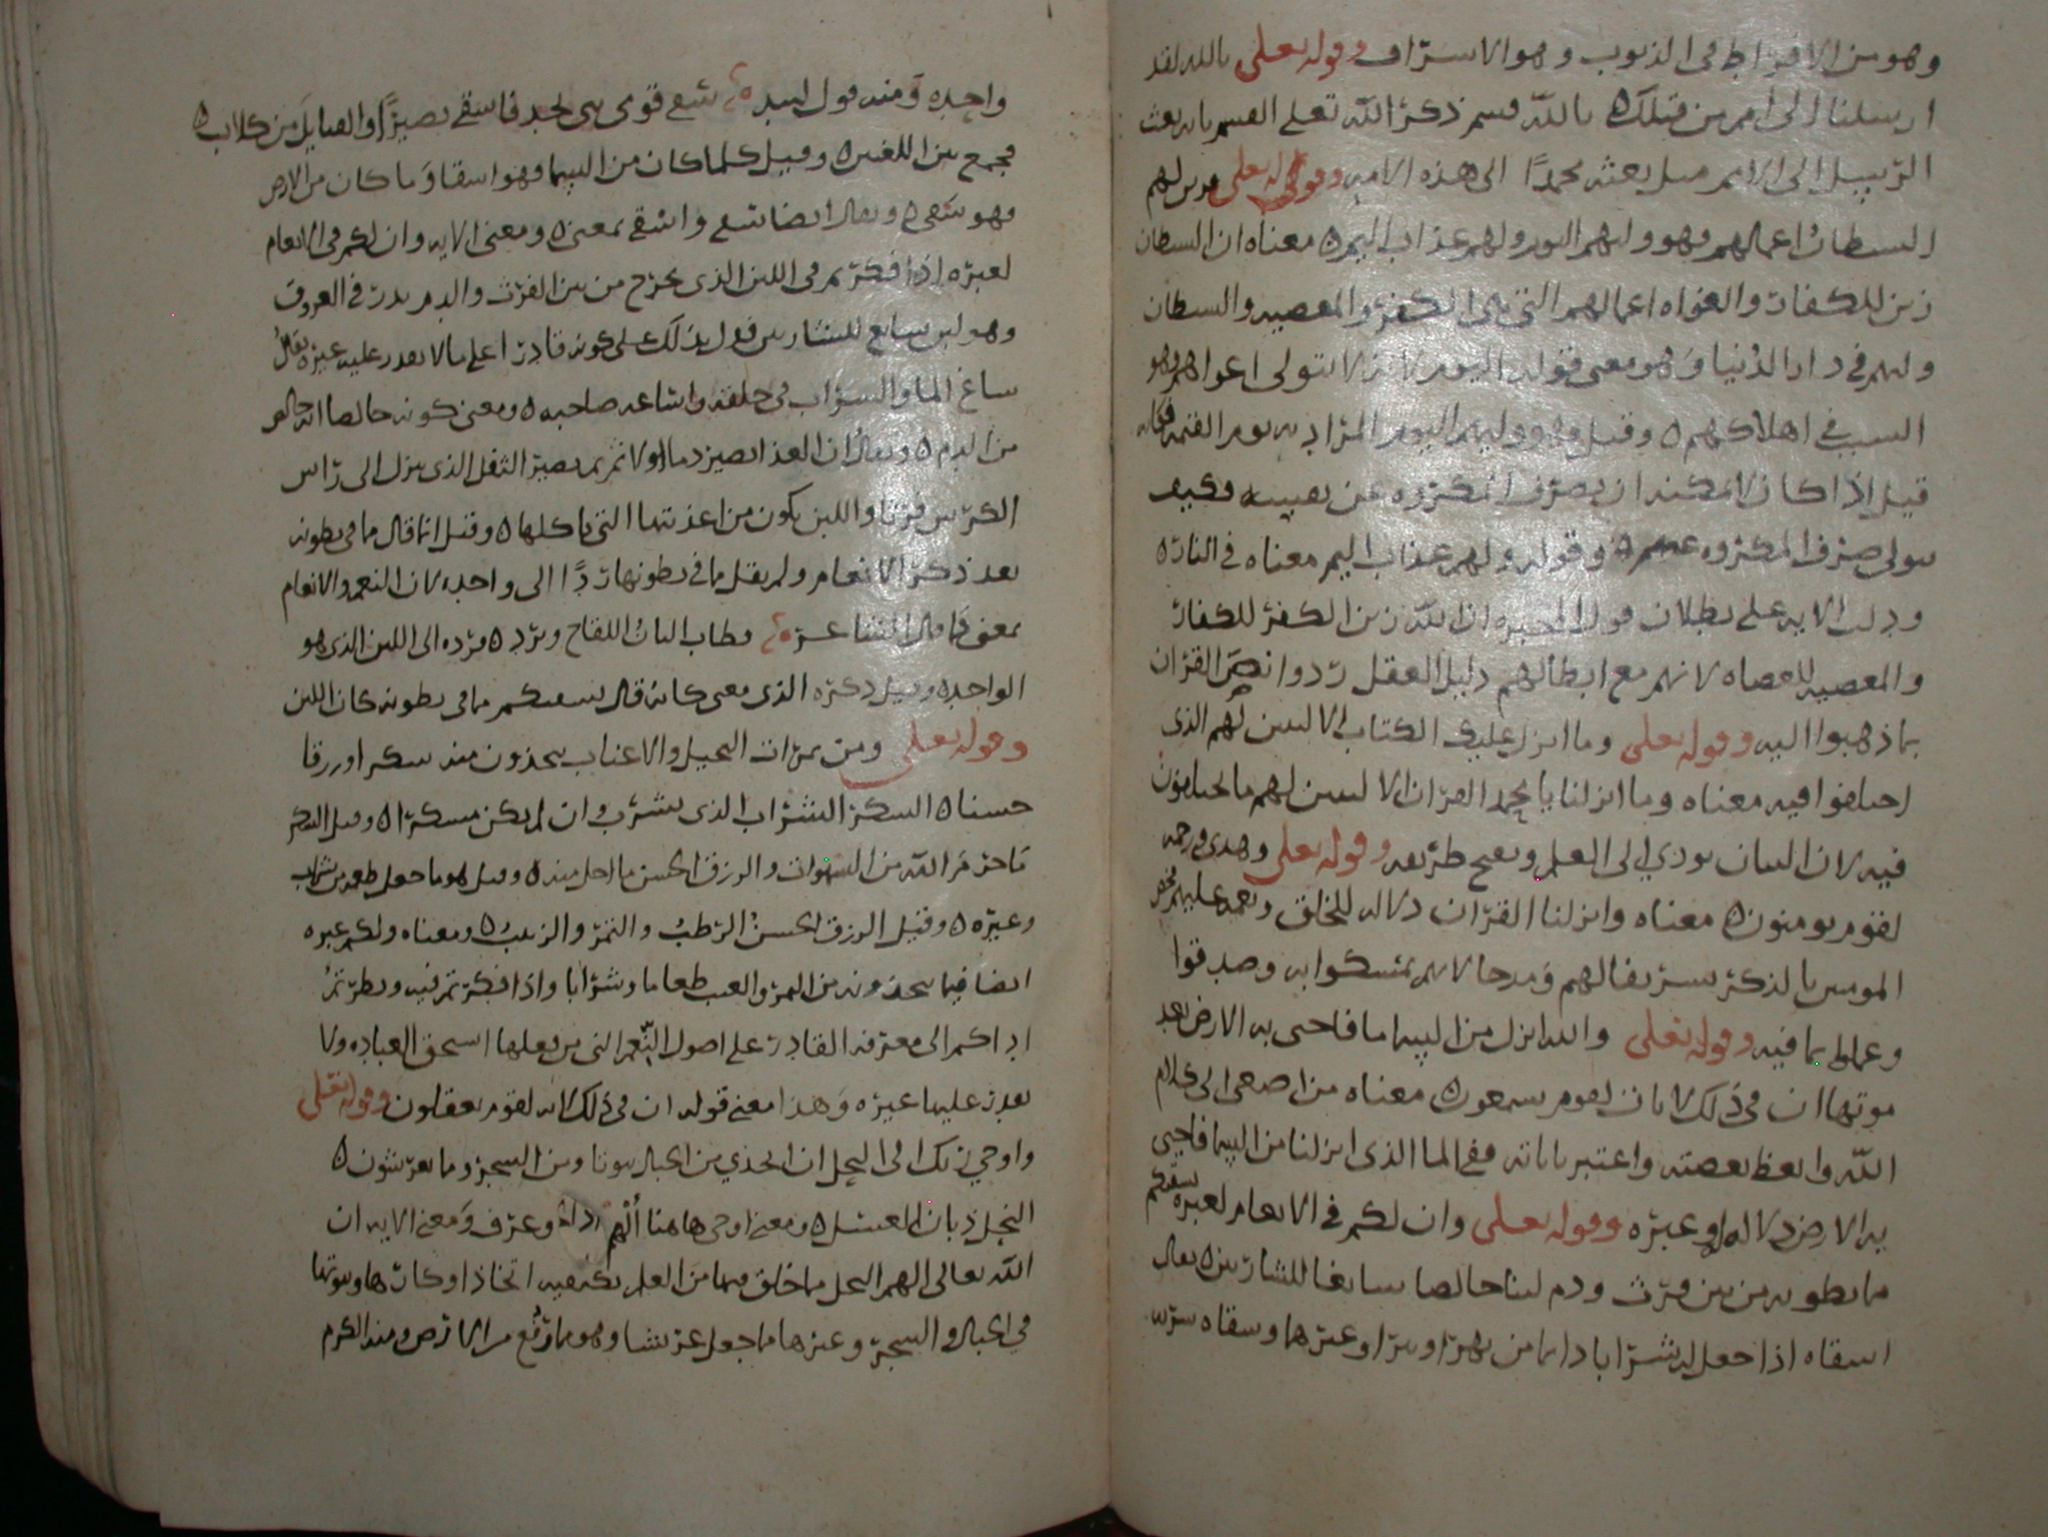 وهو من الافراط فى الذنوب وهو الاسراف وقوله تعلى تالله لقد
ارسلنا الى امم من قبلك ه بالله قسم ذكر الله تعلى القسم بانه بعث
الرسل الى الامم قبل بعثه محمدًا الى هذه الامه وقوله تعلى فزين لهم
الشيطان اعمالهم فهو وليهم اليوم ولهم عذاب اليم ه معناه ان الشيطان
زين للكفار والغواه اعمالهم التى هى الكفر والمعصيه والشيطان
وليهم فى دار الدنيا وهو معنى قوله اليوم لانه لا يتولى اغواهم وهو
السبب فى اهلاكهم ه وقيل وهو وليهم اليوم المراد به يوم القيمه فكانه
قيل اذا كان لا يمكنه ان يصرف المكروه عن نفسه فكيف
يتولى صرف المكروه عنهم ه وقوله ولهم عذاب اليم معناه فى النار ه
ودلت الايه على بطلان قول المجبره ان الله زين الكفر للكفار
والمعصيه للعصاه لانهم مع ابطالهم دليل العقل ردوا نص القران
بما ذهبوا اليه وقوله تعلى وما انزل عليك الكتاب الا لتبين لهم الذى
اختلفوا فيه معناه وما انزلنا يا محمد القران الا لتبين لهم ما يختلفون
فيه لان البيان يودي الى العلم وتصح طريقه وقوله تعلى وهدى ورحمه
لقوم يومنون ه معناه وانزلنا القران دلاله للخلق ونعمه عليهم فخص
المومنين بالذكر تشريفا لهم ومدحا لانهم تمسكوا به وصدقوا
وعملوا بما فيه وقوله تعلى والله انزل من السما ما فاحيى به الارض بعد
موتها ان فى ذلك لايات لقوم يسمعون ه معناه من اصغى الى كلام
الله واتعظ بعظته واعتبر باياته ففى الما الذى انزلنا من السما فاحيى
به الارض دلاله او عبره وقوله تعلى وان لكم فى الانعام لعبره نسقيكم
مما بطونه من بين فرث ودم لبنا خالصا سايغا للشاربين ه يقال
اسقاه اذا جعل له شرابا دايما من نهر او بير او غيرها وسقاه شربه
واحده ومنه قول لبيد سقى قومى بنى مجد فاسقى نصيرًا والقبايل من كلاب ه
فجمع بين اللغتين ه وقيل كلما كان من السما فهو اسقا وما كان من الارض
فهو سقى ه ويقال ايضا سقى واسقى بمعنى ه ومعنى الايه وان لكم فى الانعام
لعبره اذا فكرتم فى اللبن الذى يخرج من بين الفرث والدم يدر فى العروق
وهو لبن سايغ للشاربين فدل بذلك على كونه قادرا على ما لا يقدر عليه غيره يقال
ساغ الما والشراب فى حلقه واساغه صاحبه ه ومعنى كونه خالصا انه خالص
من الدم ه ويقال ان الغذا يصير دما اولا ثم يصير الثفل الذى ينزل الى راس
الكرش فرثا واللبن يكون من اغذيتها التى ياكلها ه وقيل انما قال مما فى بطونه
بعد ذكر الانعام ولم يقل مما فى بطونها ردًا الى واحده لان النعم والانعام
بمعنى كما قال الشاعر وطاب البان اللقاح وبرد ه فرده الى اللبن الذى هو
الواحد ه وقيل ذكره الذى معنى كانه قال نسقيكم مما فى بطونه كان اللبن
وقوله تعلى ومن ثمرات النخيل والاعناب تتخذون منه سكرا ورزقا
حسنا ه السكر الشراب الذى يشرب وان لم يكن مسكرا ه وقيل السكر
ما حرم الله من والرزق الحسن ما احل منه ه وقيل هو ما جعل طعم من شراب
وغيره ه وقيل الرزق الحسن الرطب والتمر والزبيب ه ومعناه ولكم عبره
ايضا فيما تتخذونه من الثمر والعنب طعاما وشرابا واذا فكرتم فيه ونظرتم
اداكم الى معرفه القادر على اصول النعم التى من فعلها استحق العباده ولا
يقدر عليها غيره وهذا معنى قوله ان فى ذلك لايه لقوم يعقلون وقوله تعلى
واوحى ربك الى النحل ان اتخذي من الجبال بيوتا ومن الشجر ومما يعرشون ه
النحل ذبان العسل ه ومعنى اوحى هاهنا الهم اراد وعرف ومعنى الايه ان
الله تعالى الهم النحل بما خلق فيها من العلم بكيفيه اتخاذ اوكارها وبيوتها
فى الجبال والشجر وغيرها مما جعل عرشا وهو ما رفع من الارض ومنه الكرم